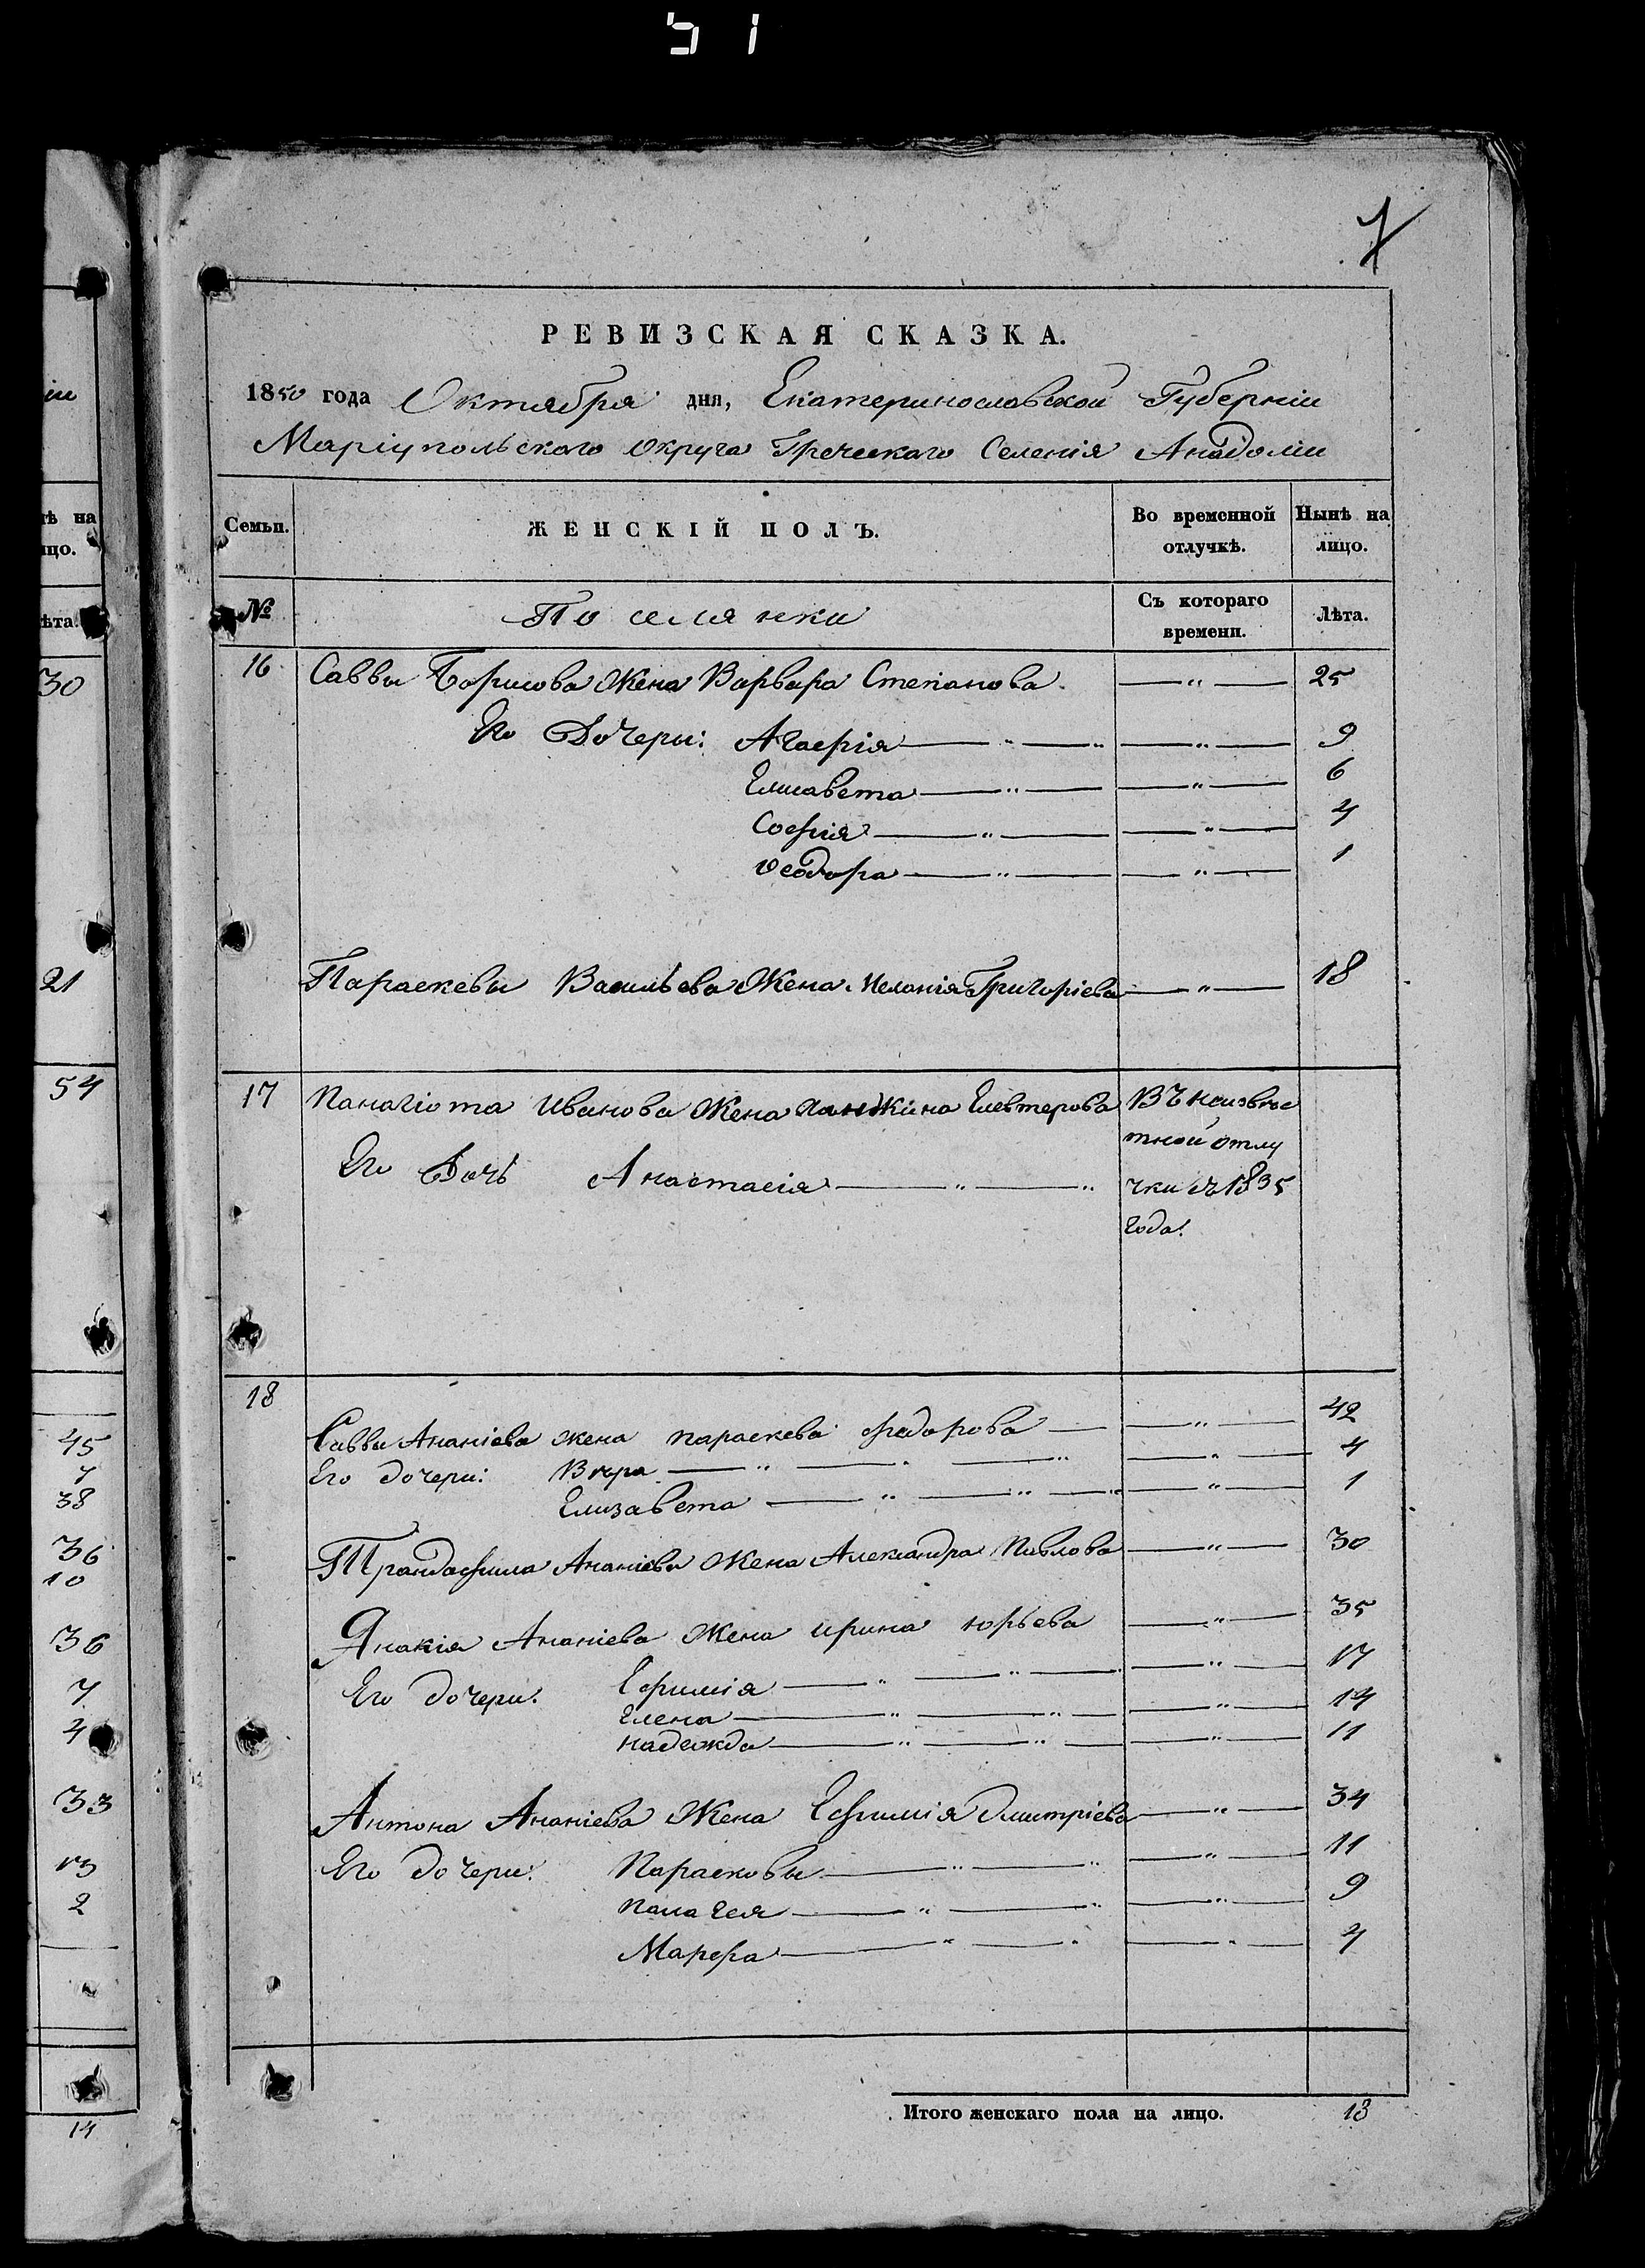 51
7
РЕВИЗСКАЯ СКАЗКА.
1850 года Октября дня, Екатеринославской Губерніи
Маріупольскаго округа Греческаго Селенія Анадоліи
Семьи. ЖЕНСКІЙ ПОЛЪ. Во временной отлучкѣ. Нынѣ на лицо.
№ Поселянки Съ котораго времени. Лѣта.
16 Саввы Борисова Жена Варвара Степанова —„— 25
Его Дочери: —„— 9
Елисавета —„— —„— 6
Софія —„— —„— 4
Ѳеодора —„— —„— 1
Параскевы Васильева Жена Меланія Григоріева —„— 18
17 Панагіота Иванова Жена Елевтерова Въ неизвѣс
тной отлу
Его Дочь Анастасія —„— „ чки съ 1835
года.
18
Саввы Ананіева жена параскева федорова — —„— 42
Его дочери: Вѣра —„— —„— —„— —„— 4
Елизавета —„— —„— „ —„— 1
Трандафила Ананіева Жена Александра Павлова —„— 30
Янакія Ананіева Жена ирина юрьева —„— 35
Его дочери: Ефимія —„— —„— —„— 17
Елена —„— —„— —„— 14
надежда —„— —„— —„— 11
Антона Ананіева Жена Ефимія Дмитріева —„— 34
Его дочери: Парасковы —„— „ —„— 11
—„— „ —„— 9
Марфа —„— „ —„— 4
Итого женскаго пола на лицо. 13
ѣ на
цо.
ѣта.
30
21
54
45
7
38
36
10
36
7
4
33
13
2
14